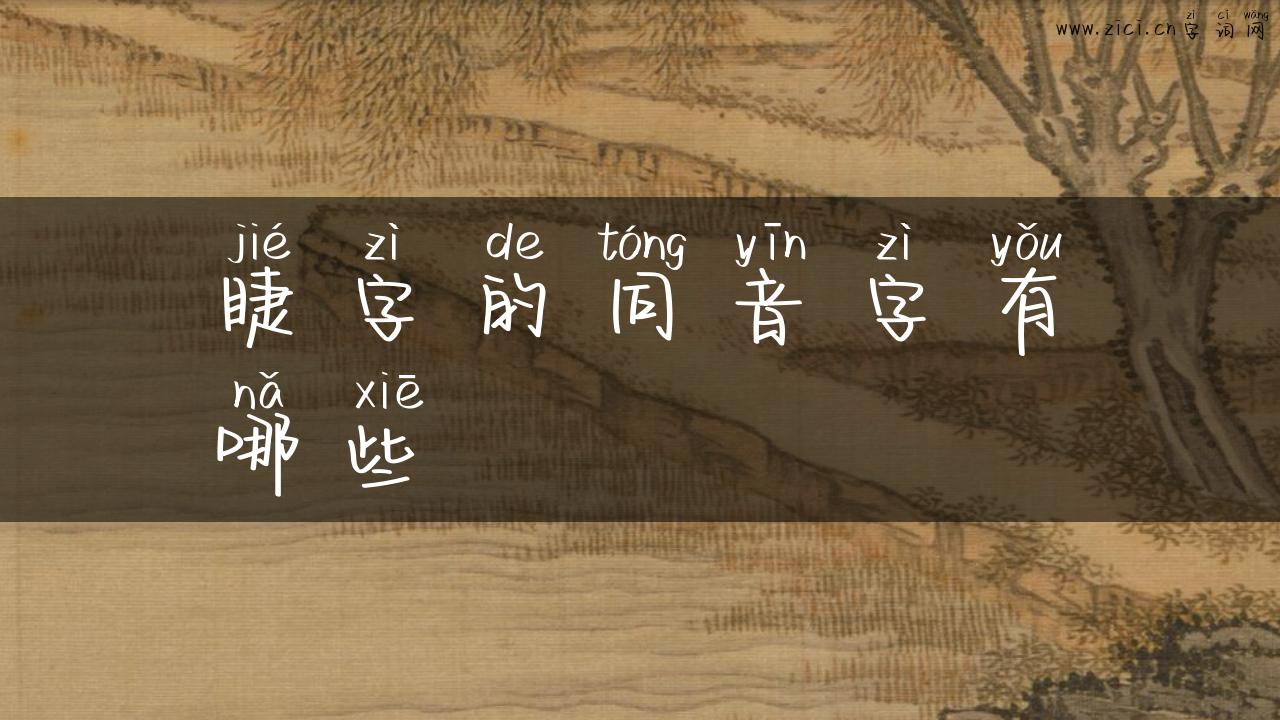 zì cí wǎng
www.zici.cn字词网
jié zì de tóng yīn zì yǒu
睫字的同音字有
nǎ xiē
哪些